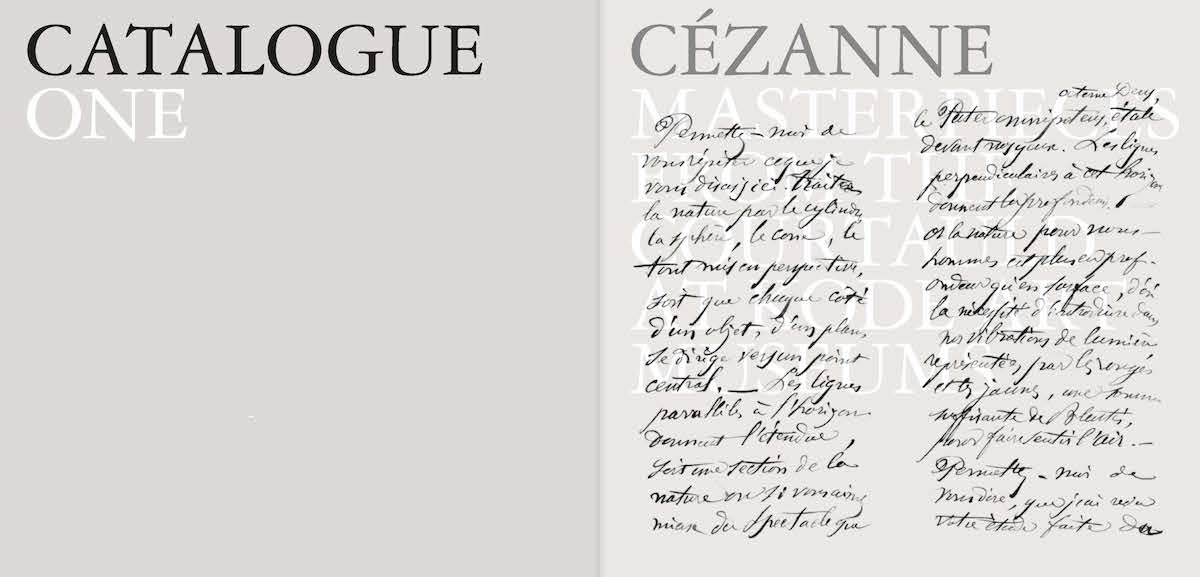 CATALOGUE
ONE
CÉZANNE
MASTERPIECES
FROM THE
COURTAULD
AT KODE ART
MUSEUMS
Permettez-moi de
vous répéter ce que je
vous disais ici: traitez
la nature par le cylindre
la sphère, le cone, le
tout mis en perspective,
soit que chaque côté
d'un objet, d'un plan,
se dirige vers un point
central. — Les lignes
parallèles à l'horizon
donnent l'étendue,
soit une section de la
nature ou si vous aimez
mieux du spectacle que
le Pater omnipotens, étale
devant nos yeux. Les lignes
perpendiculaires à cet horizon
donnent la profondeur.
Or la nature pour nous —
hommes est plus en prof-
ondeur qu'en surface, d'où
la nécessité d'introduire dans
nos vibrations de lumière
représentées par les rouges
et les jaunes, une somme
suffisante de Bleutés,
pour faire sentir l'air. —
Permettez-moi de
vous dire, que j'ai revu
votre étude faite du